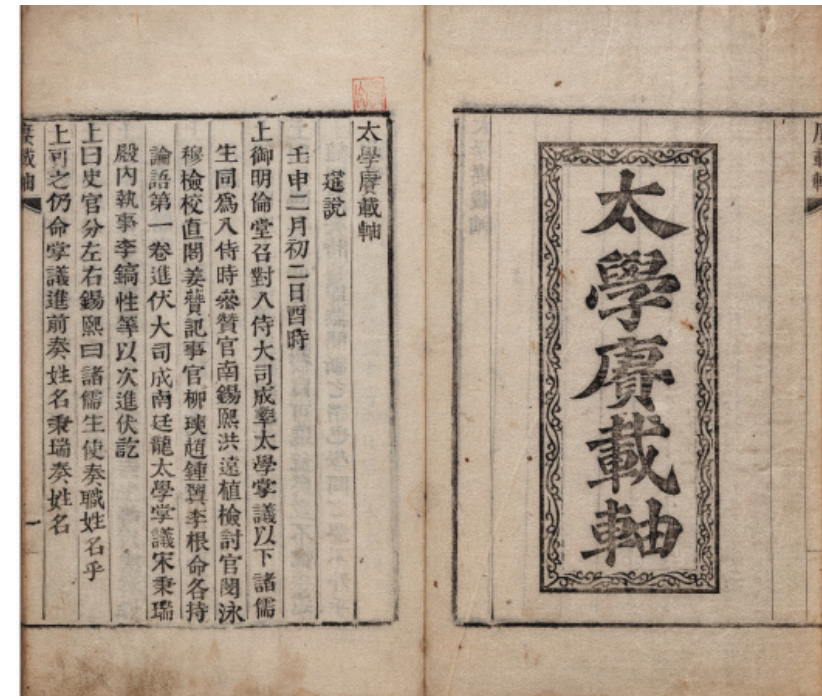 太學賡載軸
太學賡載軸
筵說
壬申二月初二日酉時
上御明倫堂召對入侍大司成率太學掌議以下諸儒
生同爲入侍時叅贊官南錫熙洪遠植檢討官閔泳
穆檢校直閣姜贊記事官柳趙鍾翼李根命各持
論語第一卷進伏大司成南廷龍太學掌議宋秉瑞
殿內執事李鎬性等以次進伏訖
上曰史官分左右錫熙曰諸儒生使奏職姓名乎
上可之仍命掌議進前奏姓名秉瑞奏姓名
賡載軸 一